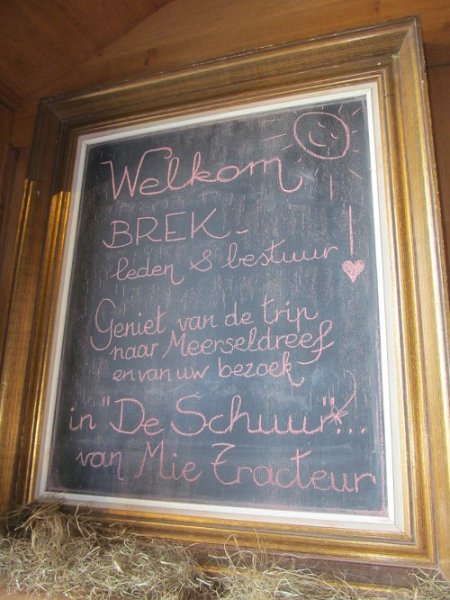 Welkom
BREK-
leden & bestuur !
Geniet van de trip
naar Meerseldreef
en van uw bezoek
in "De Schuur"...
van Mie Tracteur